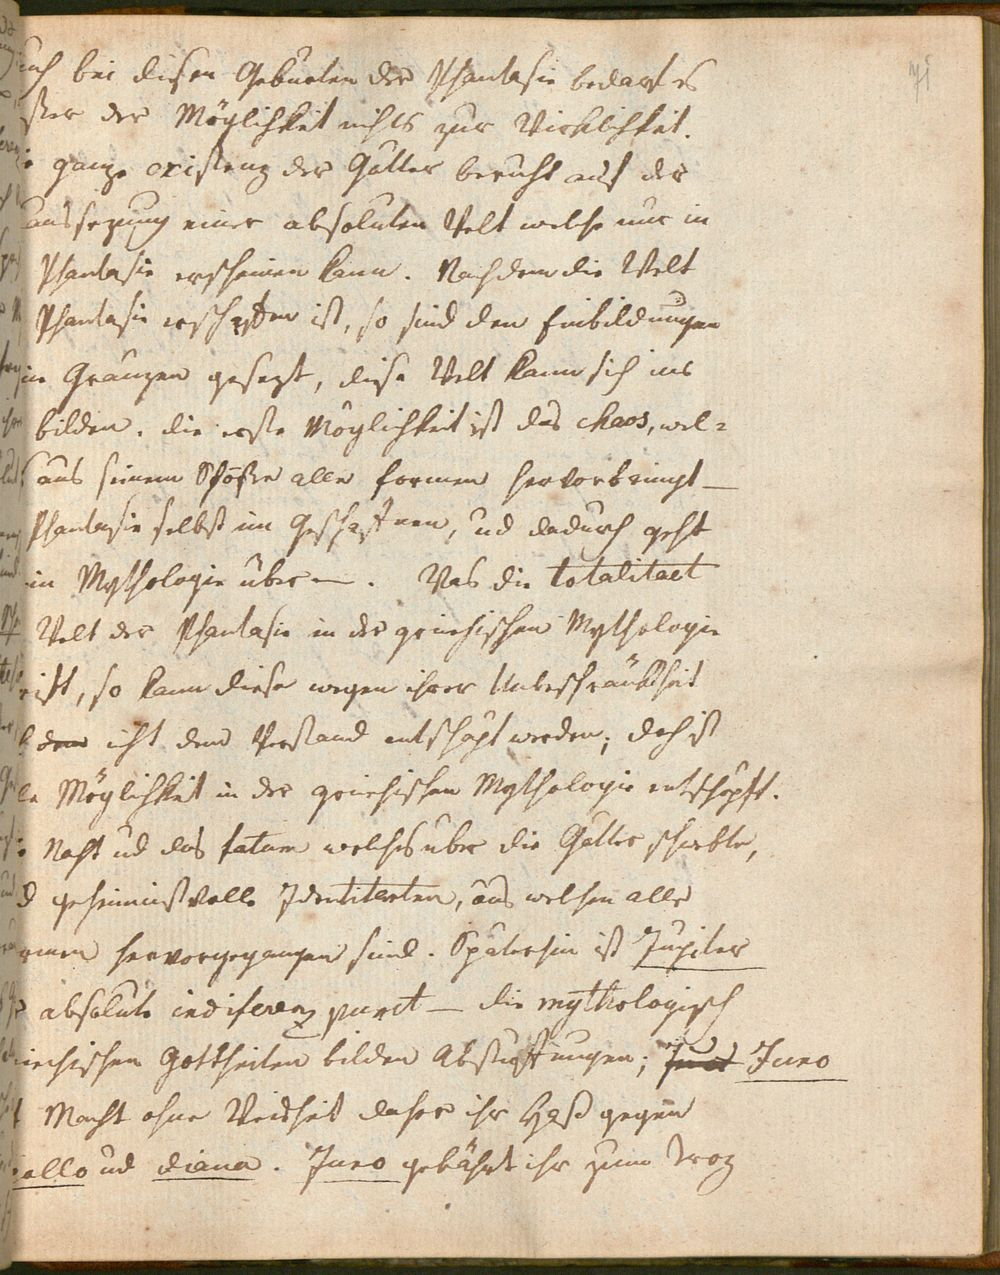 71
uch bei diesen Geburten der Phantasie bedarf es
ßer der Möglichkeit nichts zur Wirklichkeit.
e ganze existenz der Götter beruht auf der
aussezung einer absoluten Welt welche nur in
Phantasie erscheinen kann. Nachdem die Welt
Phantasie erschaffen ist, so sind den Einbildungen
ine Gränzen gesezt, diese Welt kann sich ins
bilden. die erste Möglichkeit ist das chaos, wel=
s aus seinem Schoße alle formen hervorbringt —
Phantasie selbst im Geschaffnen, ud dadurch geht
in Mythologie über —. Was die totalitaet
Welt der Phantasie in der griechischen Mythologie
rist, so kann diese wegen ihrer Unbeschränktheit
dem icht dem Verstand entschöpft werden; doch ist
le Möglichkeit in der griechischen Mythologie entschöpft.
e Nacht ud das fatum welches über die Götter schwebte,
d geheimnißvolle Identitaeten, aus welchen alle
rmen hervorgegangen sind. Späterhin ist Jupiter
r absolute indiferenz punct — die mythologisch
iechischen Gottheiten bilden Abstuffungen; Juno
t Macht ohne Weisheit daher ihr Haß gegen
pollo ud Diana. Juno gebährt ihr zum Troz